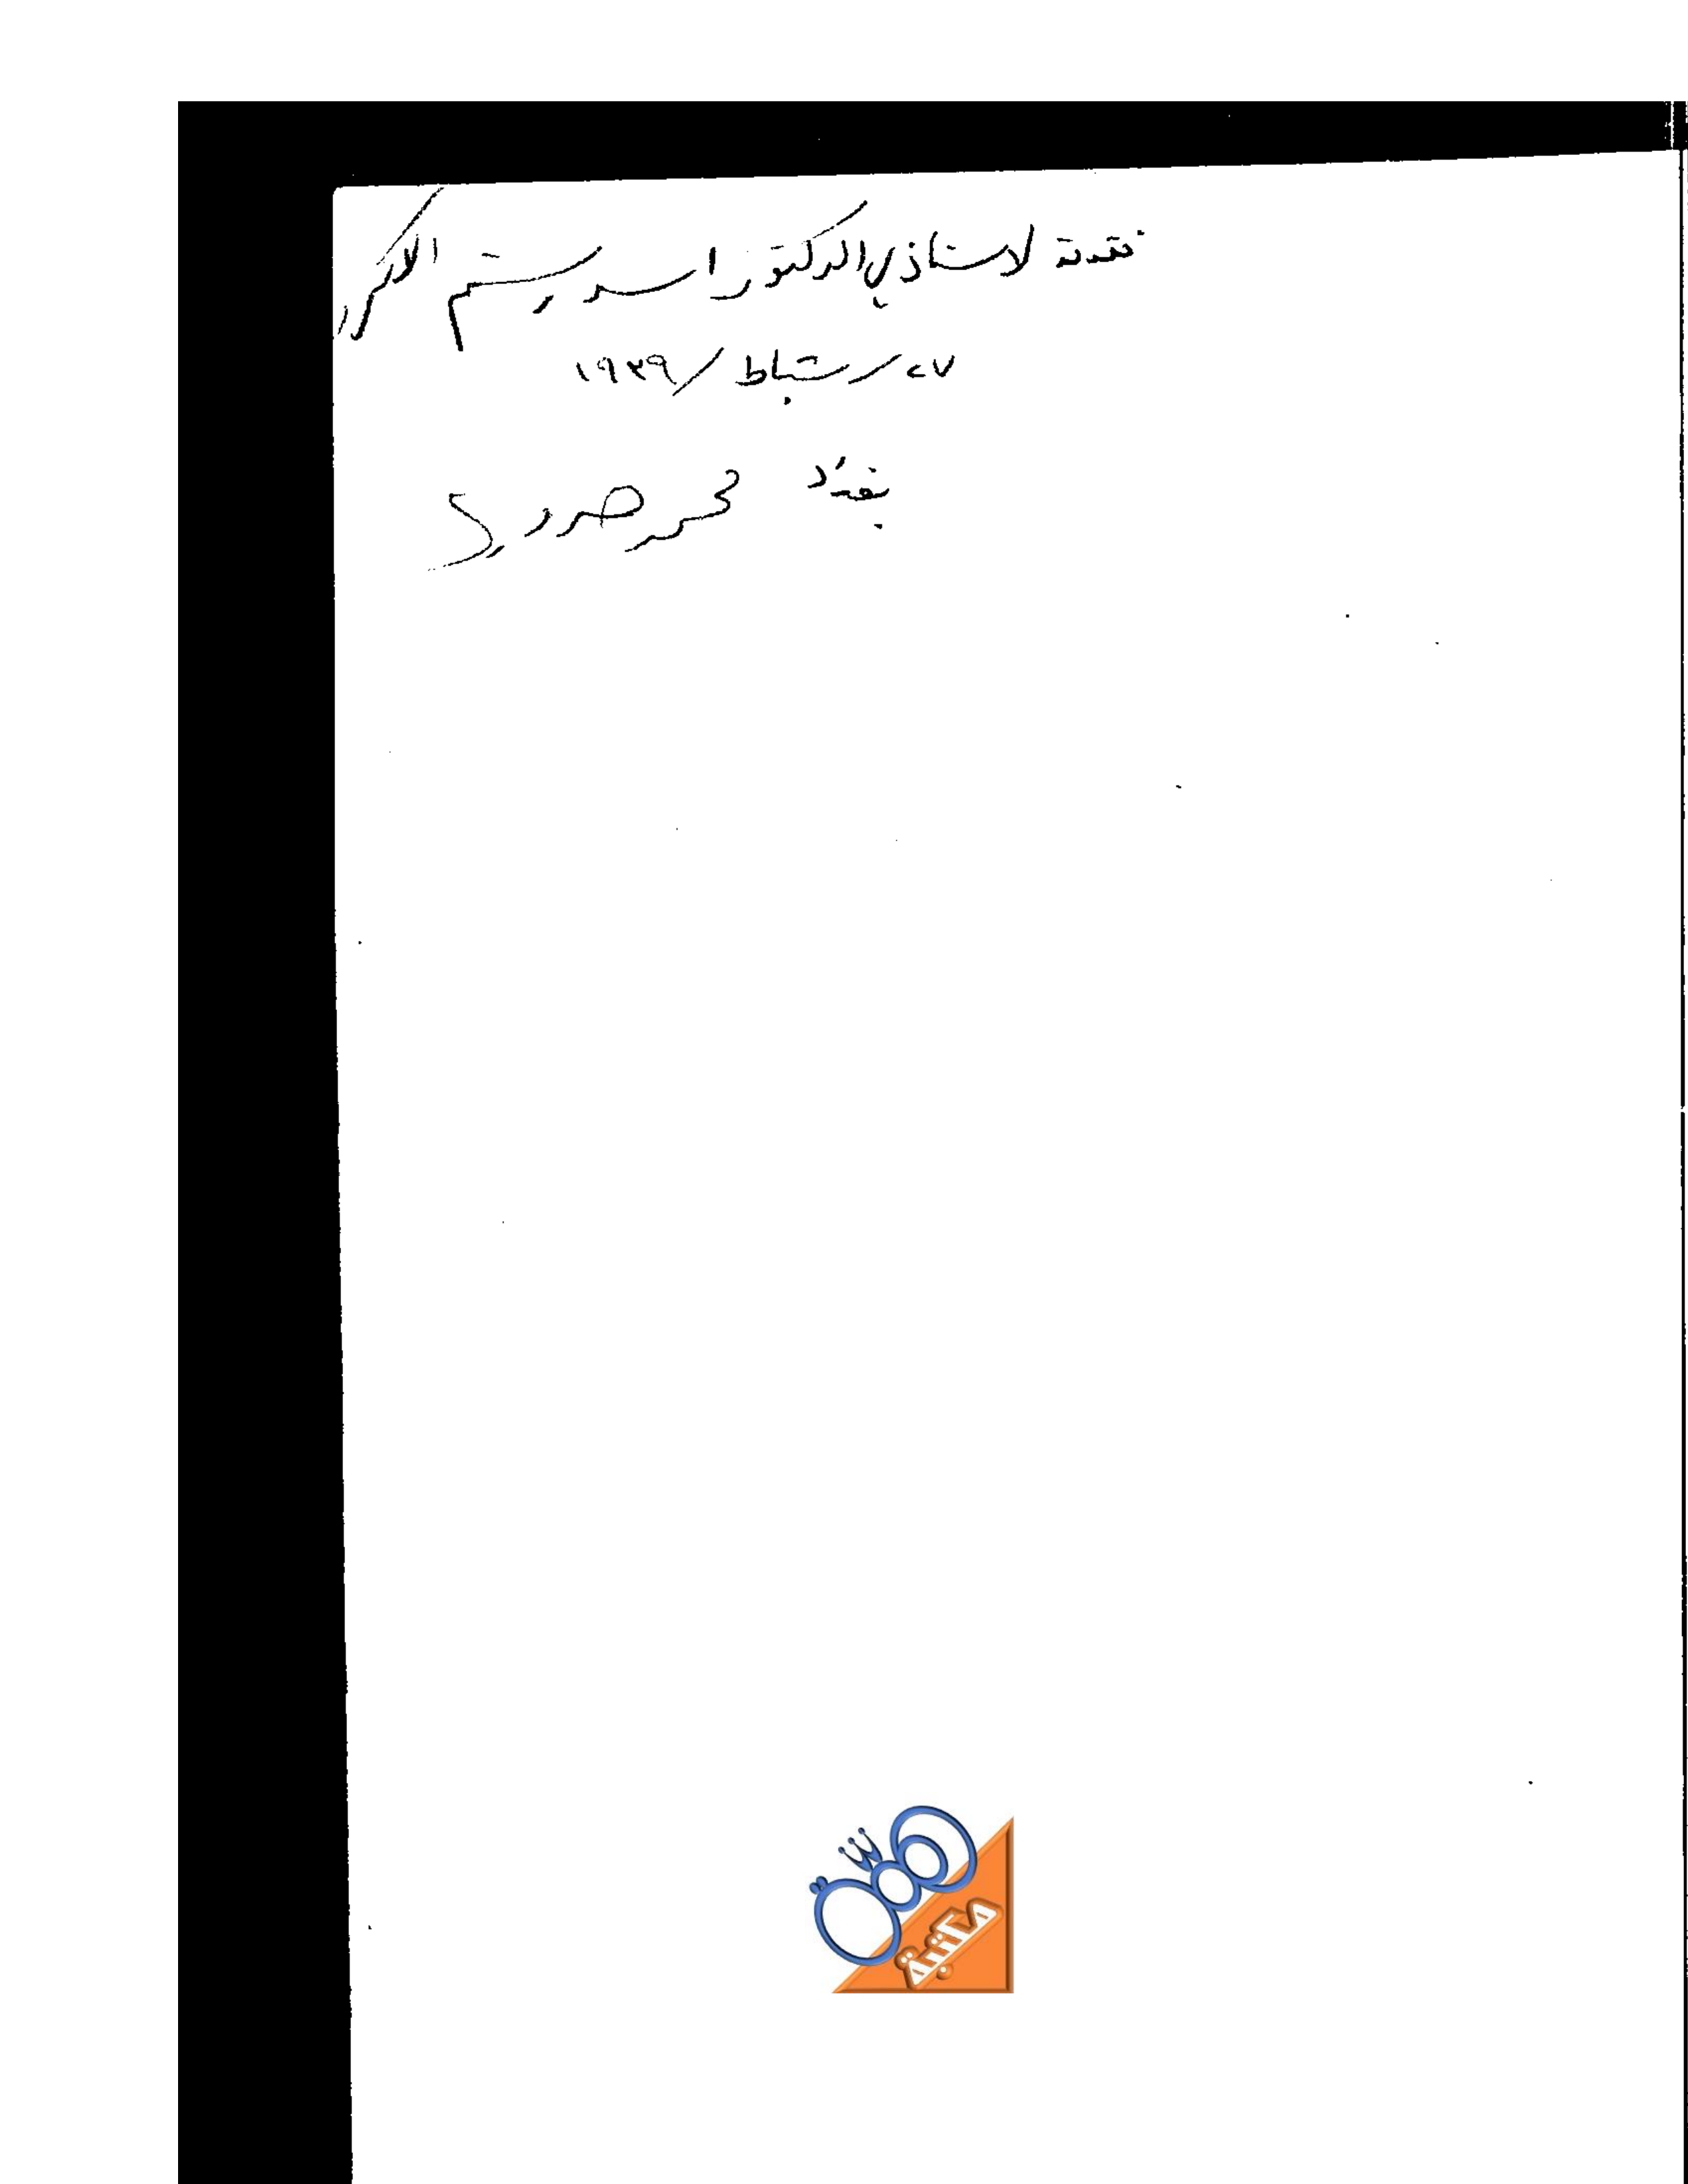 تقدمة لاستاذي الدكتور اسد رستم الاكرم
٢٧/شباط/١٩٣٩
بغداد
مكتبة